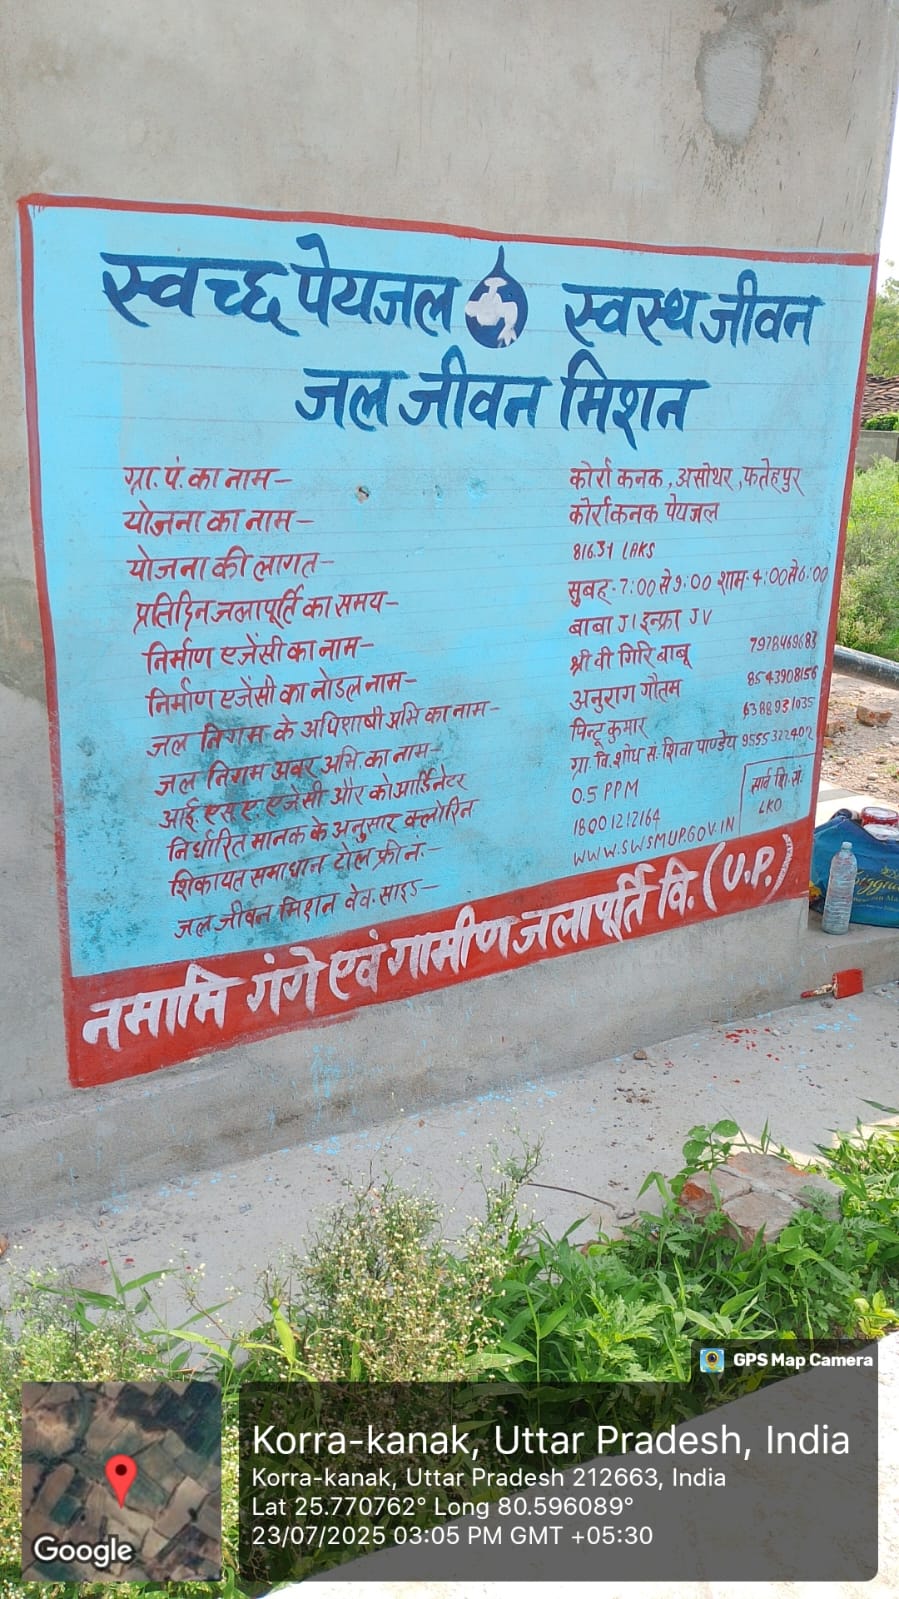 स्वच्छ पेयजल स्वस्थ जीवन
जल जीवन मिशन
ग्रा. पं. का नाम- कोर्रा कनक, असोथर, फतेहपुर
योजना का नाम- कोर्रा कनक पेयजल
योजना की लागत- 816.31 LAKS
प्रतिदिन जलापूर्ति का समय- सुबह - 7:00 से 9:00 शाम - 4:00 से 6:00
निर्माण एजेंसी का नाम- बाबा JI इन्फ्रा JV
निर्माण एजेंसी का नोडल नाम- श्री वी गिरि बाबू 7978469683
जल निगम के अधिशाषी अभि का नाम- अनुराग गौतम 8543908156
जल निगम अवर अभि. का नाम- पिन्टू कुमार 6388931035
आई. एस. ए. एजेंसी और कोआर्डिनेटर ग्रा. वि. शोध सं. शिवा पाण्डेय 9555322402
निर्धारित मानक के अनुसार क्लोरिन 0.5 PPM
शिकायत समाधान टोल फ्री न.- 18001212164
जल जीवन मिशन वेव. साइड- WWW.SWSMUP.GOV.IN
LKO
नमामि गंगे एवं गामीण जलापूर्ति वि. (U.P.)
GPS Map Camera
Korra-kanak, Uttar Pradesh, India
Korra-kanak, Uttar Pradesh 212663, India
Lat 25.770762° Long 80.596089°
23/07/2025 03:05 PM GMT +05:30
Google